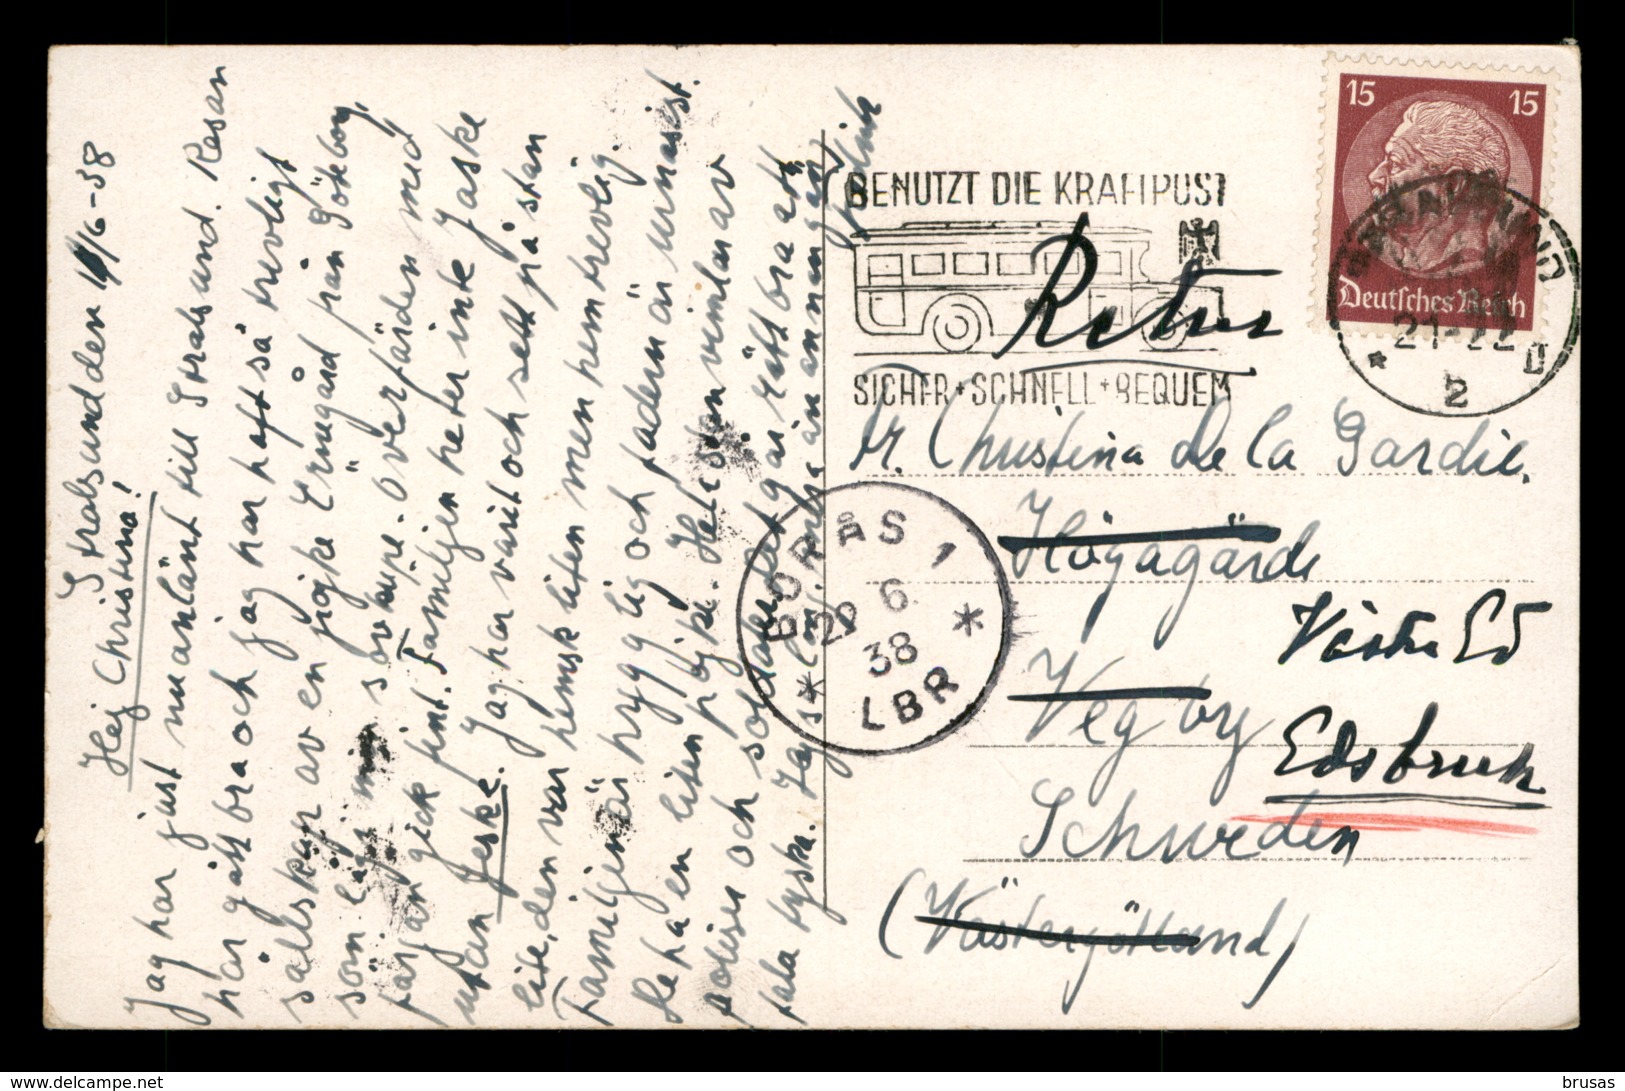 Stralsund den 11/6-38
Hej Christina!
Jag har just nu anlänt till Stralsund. Resan
har gått bra och jag har haft så trevligt
sällskap av en pojke Ermgård från Göteborg,
som låg i min sovkupe. Överfärden med
färjan gick fint. Familjen heter inte Jaske
utan Jeske. Jag har varit och sett på stan
lite, den var hemsk liten men hemtrevlig.
Familjen är hygglig och fadern är urmaist.
De ha en liten pojke. Helt som vimlar av
poliser och soldater. Det går rätt bra att
tala tyska. Jag slm. Inga annan gång
Ulrich
BENUTZT DIE KRAFTPOST
SICHER + SCHNELL + BEQUEM
15 15
Deutsches Reich
STRALSUND
21-22
* 2 D
Retur
Fr. Christina de la Gardie,
Högagärde
Västra Ed
Vegby
Edsbruk
Schweden
(Västergötland)
BORÅS 1
22 6
38
* LBR *
Auf-Nr. 385483477
brusas